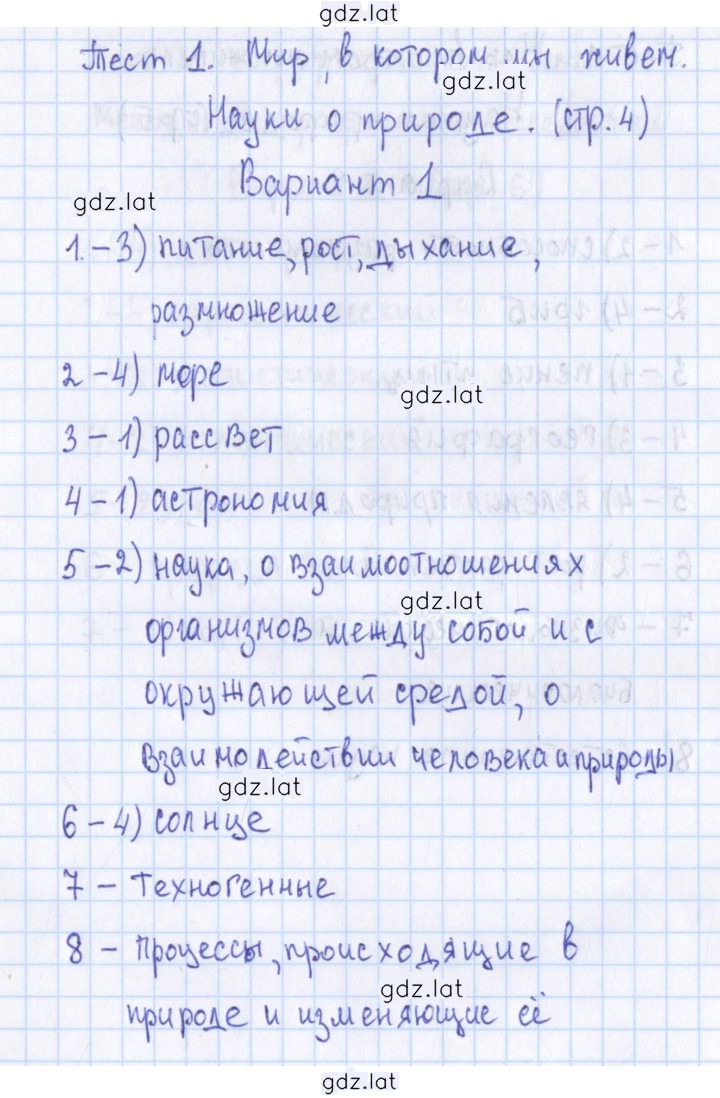 gdz.lat
Тест 1. Мир, в котором мы живем.
gdz.lat
Науки о природе. (стр. 4)
Вариант 1
gdz.lat
1. – 3) питание, рост, дыхание,
размножение
2 – 4) море
gdz.lat
3 – 1) рассвет
4 – 1) астрономия
5 – 2) наука, о взаимоотношениях
gdz.lat
организмов между собой и с
окружающей средой, о
взаимодействии человека и природы
gdz.lat
6 – 4) солнце
7 – Техногенные
8 – Процессы, происходящие в
gdz.lat
природе и изменяющие её
gdz.lat